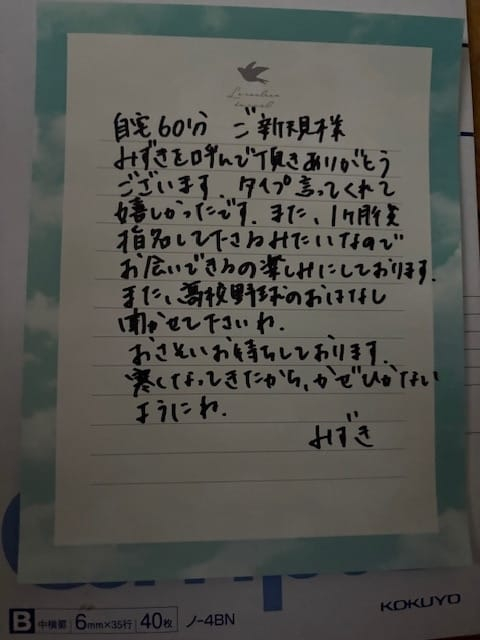 自宅60分 ご新規様
みずきを呼んで頂きありがとう
ございます。タイプ言ってくれて
嬉しかったです。また、1ヶ月後
指名して下さるみたいなので
お会いできるの楽しみにしております。
また、高校野球のおはなし
聞かせて下さいね。
おさそいお待ちしております。
寒くなってきたから、かぜひかない
ようにね。
みずき
B 中横罫 6mm×35行 40枚 ノ-4BN
KOKUYO